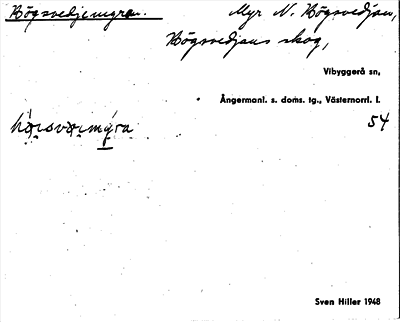 Högsvedjemyran. Myr N. Högsvedjan,
Högsvedjans skog,
Vibyggerå sn,
Ångermanl. s. doms. tg., Västernorrl. l.
54
Sven Hiller 1948